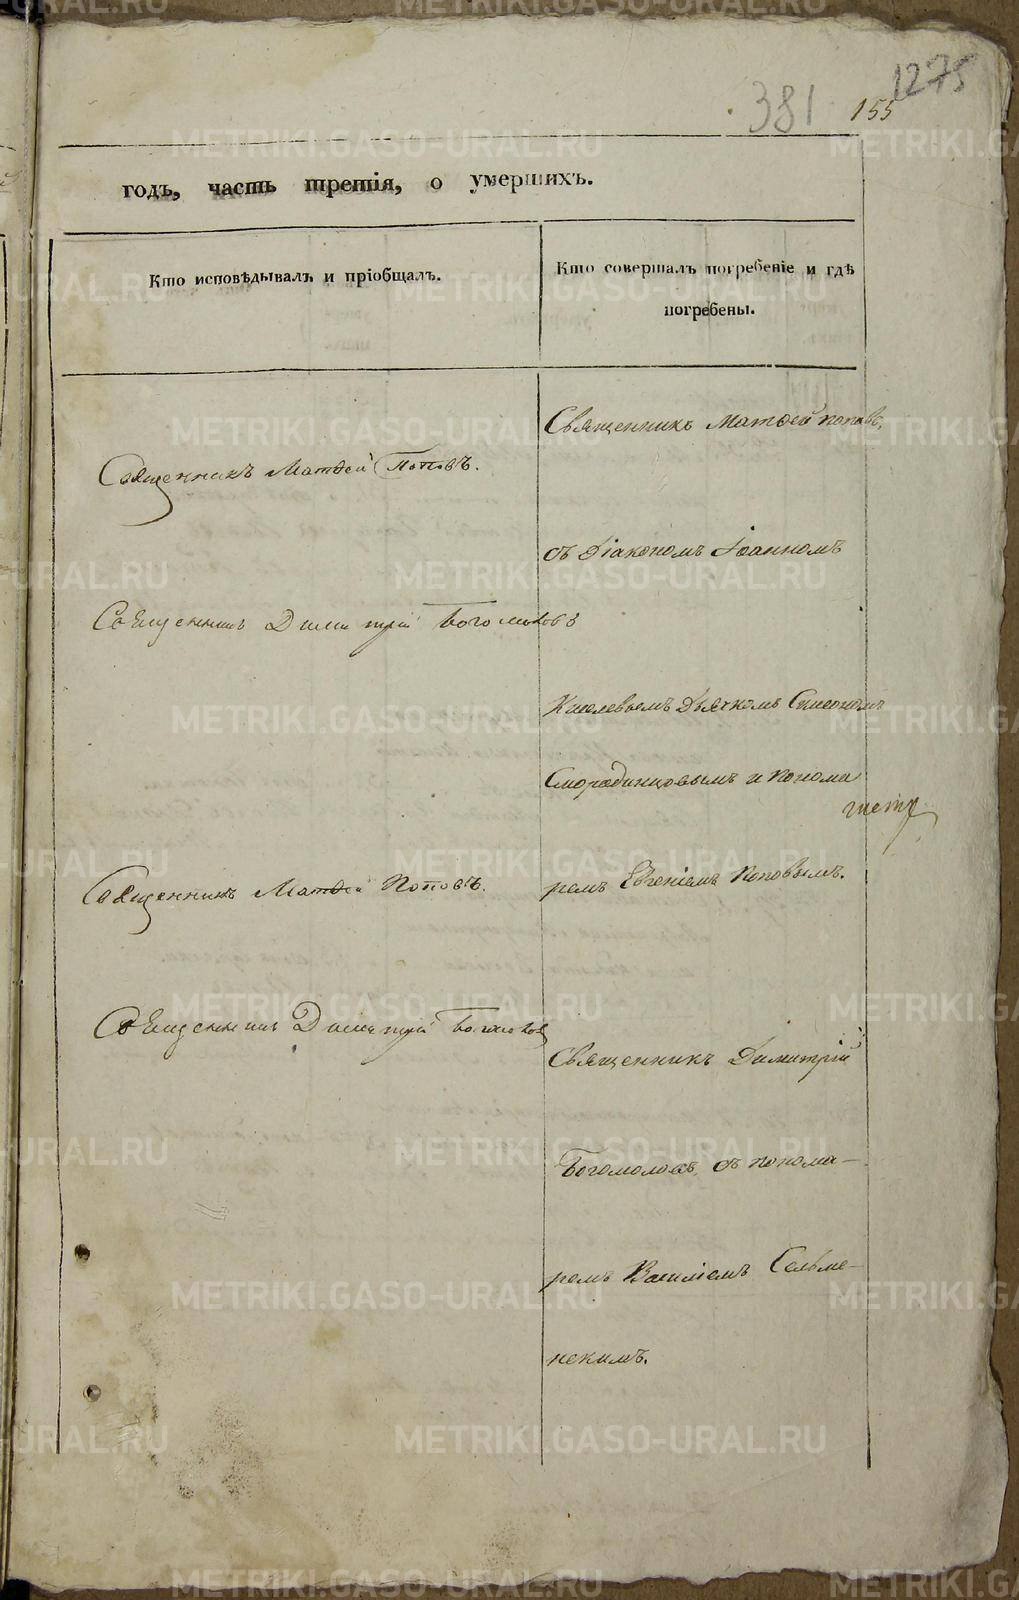 1275
381 155
годъ, часть третія, о умершихъ.
Кто исповѣдывалъ и пріобщалъ.
Кто совершалъ погребеніе и гдѣ
погребены.
Священникъ Матѳей Поповъ.
Священникъ Матѳей Поповъ.
съ Діакономъ Іоанномъ
Священникъ Димитрій Богомоловъ
Киселевымъ Дьячкомъ Симеономъ
Смородинцовымъ и понома
ремъ Евгеніемъ Поповымъ.
Священникъ Матѳей Поповъ.
Священникъ Димитрій Богомоловъ
Священникъ Димитрій
Богомоловъ съ понома-
ремъ Василіемъ Сельме-
нскимъ.
METRIKI.GASO-URAL.RU